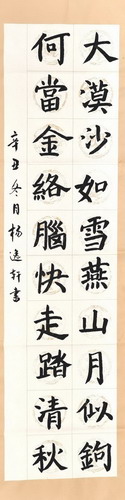 大漠沙如雪燕山月似鉤
何當金絡腦快走踏清秋
辛丑冬月楊逸軒書